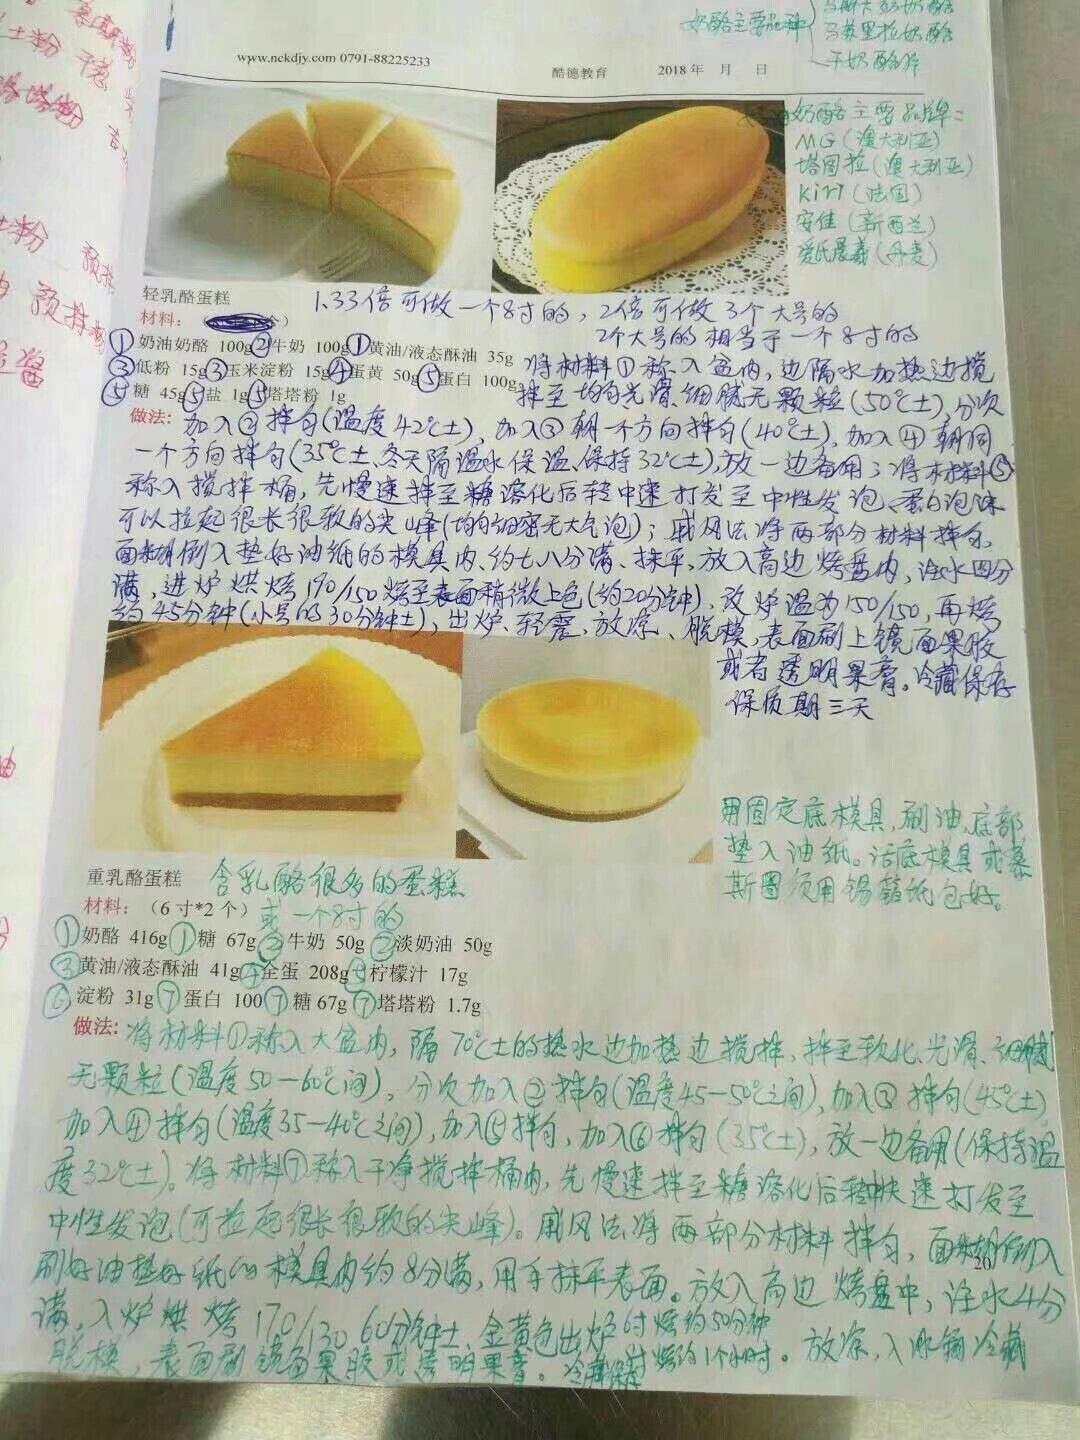 奶酪主要品种
马斯卡彭奶酪
马苏里拉奶酪
干奶酪碎
www.nckdjy.com 0791-88225233
酷德教育 2018年 月 日
奶酪主要品牌:
MG(澳大利亚)
塔图拉(澳大利亚)
kiri(法国)
安佳(新西兰)
爱氏晨曦(丹麦)
轻乳酪蛋糕
1.33倍可做一个8寸的,2倍可做3个大号的
2个大号的相当于一个8寸的
材料:
①奶油奶酪 100g②牛奶 100g①黄油/液态酥油 35g
③低粉 15g③玉米淀粉 15g④蛋黄 50g⑤蛋白 100g
⑤糖 45g⑤盐 1g⑤塔塔粉 1g
做法:将材料①称入盆内,边隔水加热边搅
拌至均匀光滑细腻无颗粒(50℃±),分次
加入②拌匀(温度42℃±),加入③朝一个方向拌匀(40℃±),加入④朝同
一个方向拌匀(35℃±,冬天隔温水保温、保持32℃±),放一边备用;将材料⑤
称入搅拌桶,先慢速拌至糖溶化后转中速打发至中性发泡、蛋白泡沫
可以拉起很长很软的尖峰(均匀细密无大气泡);戚风法将两部分材料拌匀,
面糊倒入垫好油纸的模具内、约七八分满、抹平,放入高边烤盘内,注水四分
满,进炉烘烤170/150烤至表面稍微上色(约20分钟),改炉温为150/150,再烤
约45分钟(小号的30分钟±),出炉、轻震、放凉、脱模,表面刷上镜面果胶
或者透明果膏。冷藏保存
保质期三天
用固定底模具,刷油、底部,
垫入油纸。活底模具或慕
斯圈须用锡箔纸包好。
重乳酪蛋糕 含乳酪很多的蛋糕
材料:(6寸*2个)或一个8寸的
①奶酪 416g①糖 67g②牛奶 50g②淡奶油 50g
③黄油/液态酥油 41g④全蛋 208g⑤柠檬汁 17g
⑥淀粉 31g⑦蛋白 100⑦糖 67g⑦塔塔粉 1.7g
做法:将材料①称入大盆内,隔70℃±的热水边加热边搅拌,拌至软化、光滑、细腻
无颗粒(温度50—60℃间)。分次加入②拌匀(温度45—50℃之间),加入③拌匀(45℃±)
加入④拌匀(温度35—40℃之间),加入⑤拌匀,加入⑥拌匀(35℃±),放一边备用(保持温
度32℃±)。将材料⑦称入干净搅拌桶内,先慢速拌至糖溶化后转中快速打发至
中性发泡(可拉起很长很软的尖峰)。戚风法将两部分材料拌匀,面糊倒入
20
刷好油垫好纸的模具内约8分满,用手抹平表面。放入高边烤盘中,注水4分
满,入炉烘烤170/130 60分钟±,金黄色出炉 6寸烤约50分钟
烤约1个小时。放凉,入冰箱冷藏
脱模,表面刷镜面果胶或透明果膏。冷藏保存